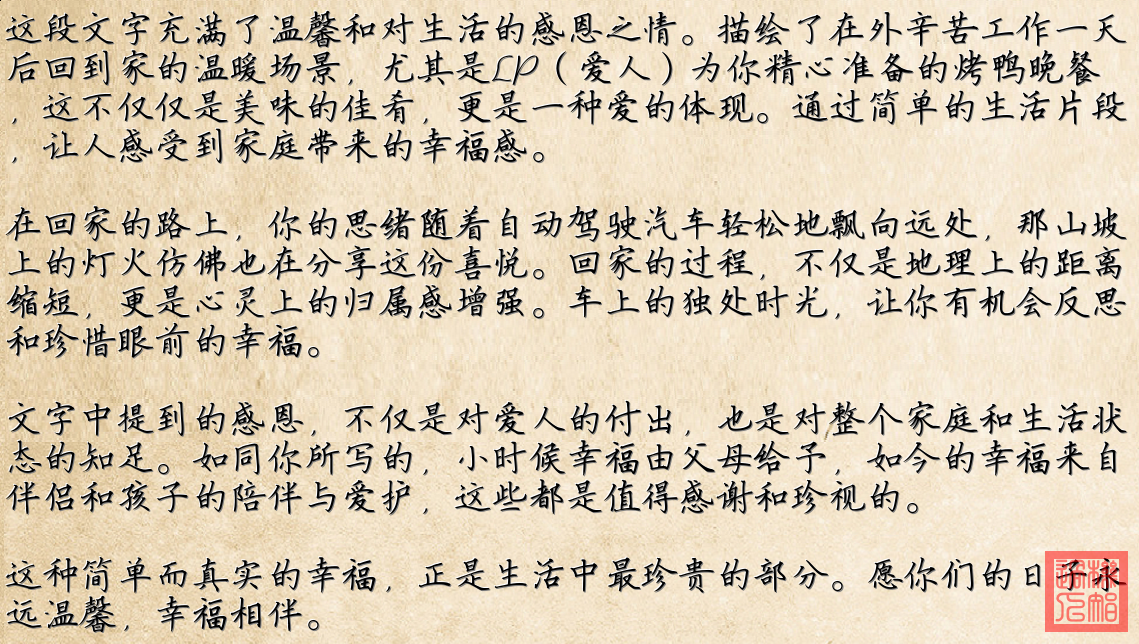 这段文字充满了温馨和对生活的感恩之情。描绘了在外辛苦工作一天
后回到家的温暖场景，尤其是LP（爱人）为你精心准备的烤鸭晚餐
，这不仅仅是美味的佳肴，更是一种爱的体现。通过简单的生活片段
，让人感受到家庭带来的幸福感。
在回家的路上，你的思绪随着自动驾驶汽车轻松地飘向远处，那山坡
上的灯火仿佛也在分享这份喜悦。回家的过程，不仅是地理上的距离
缩短，更是心灵上的归属感增强。车上的独处时光，让你有机会反思
和珍惜眼前的幸福。
文字中提到的感恩，不仅是对爱人的付出，也是对整个家庭和生活状
态的知足。如同你所写的，小时候幸福由父母给予，如今的幸福来自
伴侣和孩子的陪伴与爱护，这些都是值得感谢和珍视的。
这种简单而真实的幸福，正是生活中最珍贵的部分。愿你们的日子永
远温馨，幸福相伴。